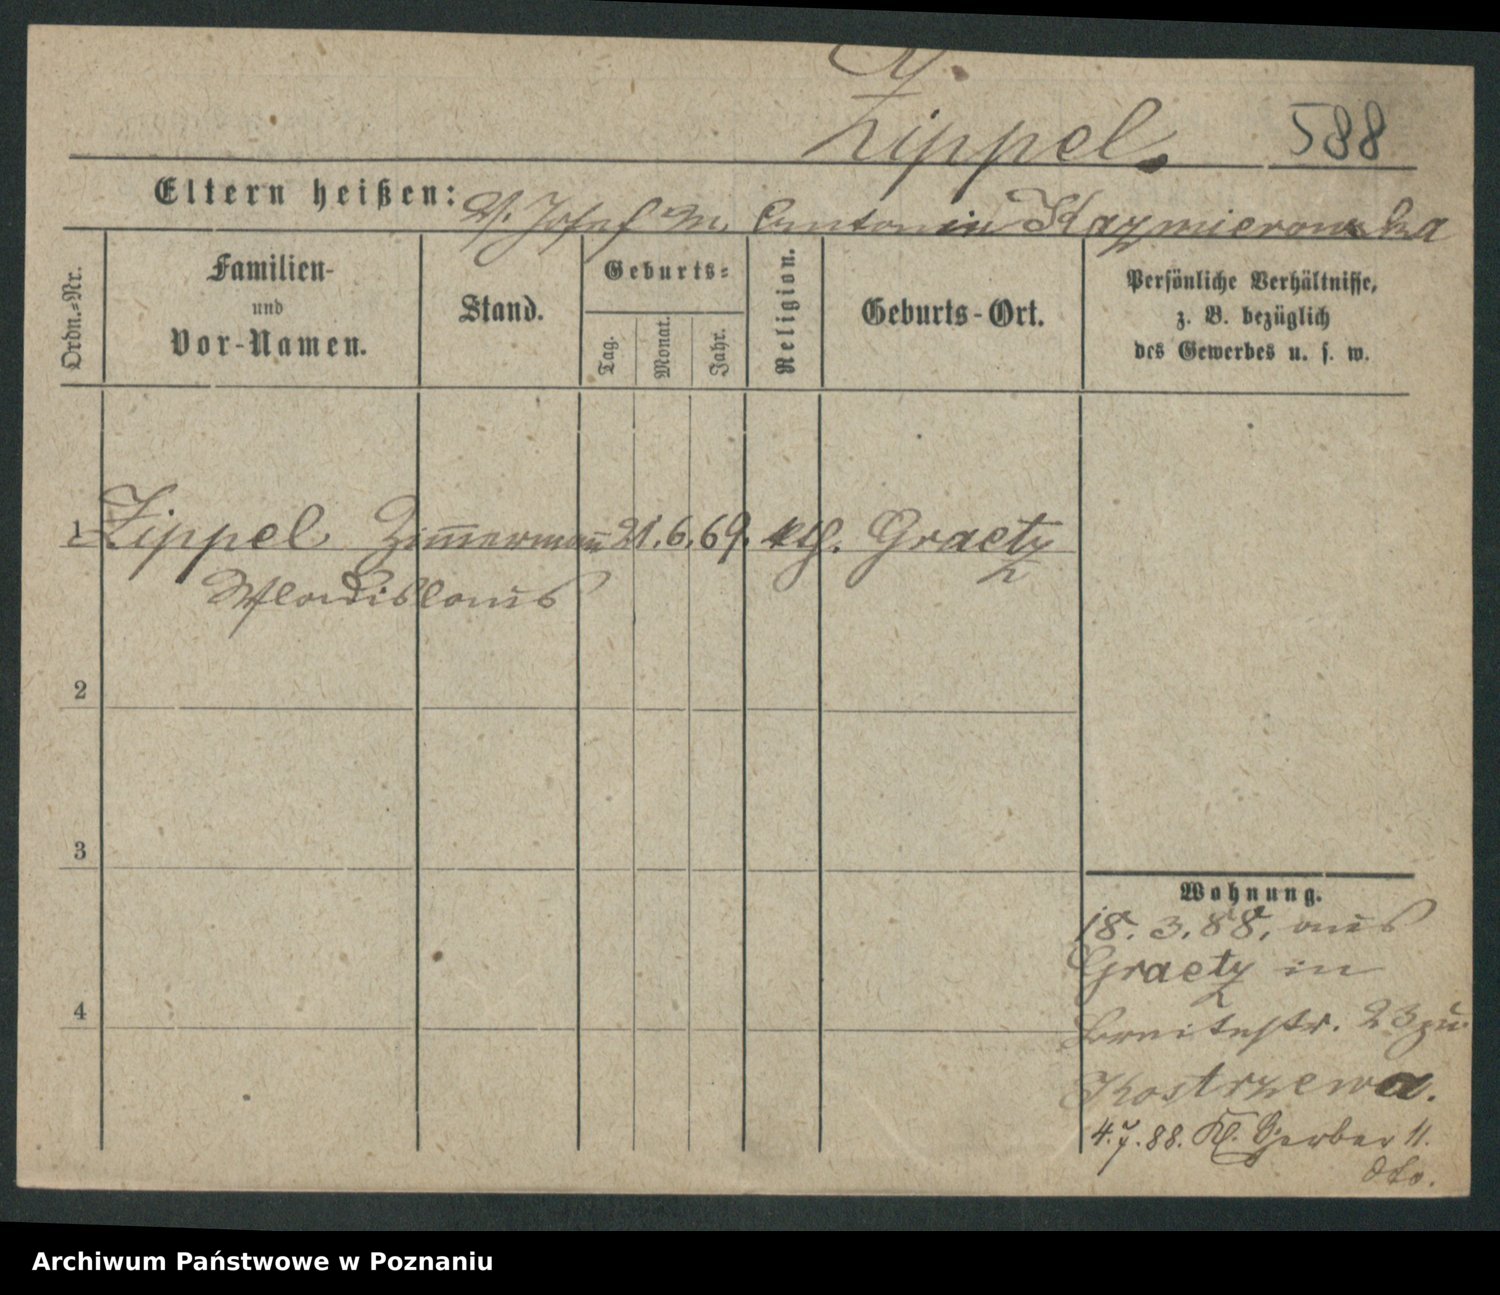 Zippel. 588
Eltern heißen: V. Josef M. Antonin Kazmierowska
Ordn.-Nr.
Familien-
und
Vor-Namen.
Stand.
Geburts-
Tag.
Monat.
Jahr.
Religion.
Geburts-Ort.
Persönliche Verhältnisse,
z. B. bezüglich
des Gewerbes u. s. w.
1 Zippel Zim̄erman̄ 21. 6. 69. kth. Graetz
Wladislaus
2
3
4
Wohnung.
18. 3. 88. aus
Graetz in
Breitestr. 23 zu
Kostrzewa.
4. 7. 88. Kl. Gerber 11.
dto.
Archiwum Państwowe w Poznaniu